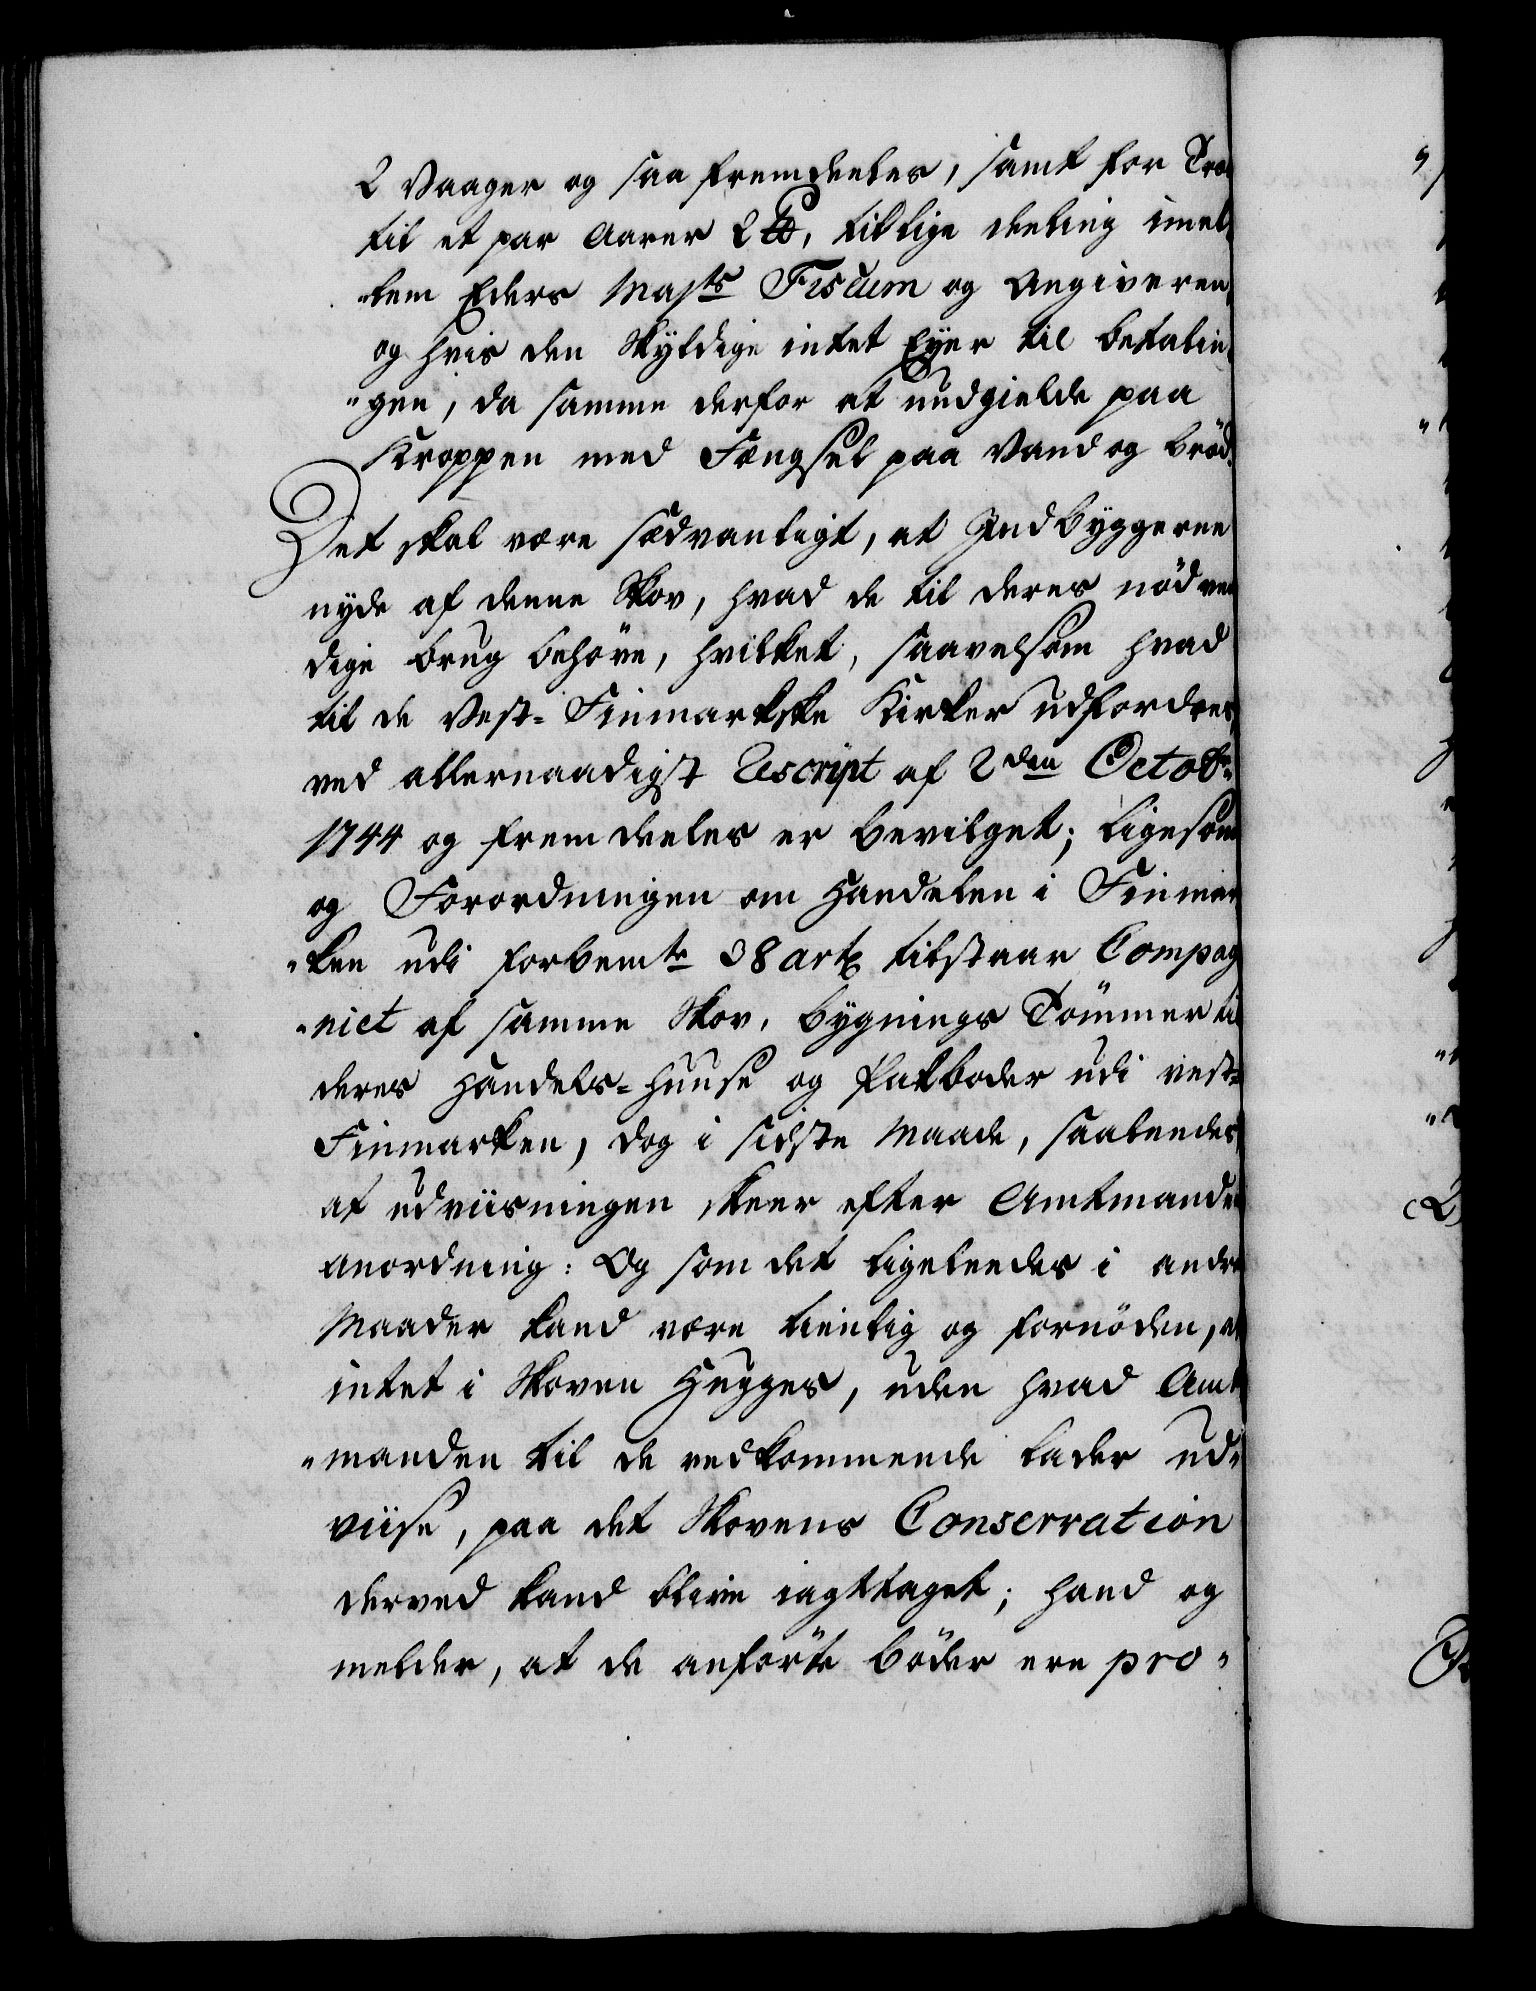 2 Vaager og saa fremdeeles, samt for Træ
til et par Aarer 2 ℔, til lige deeling imel
"lem Eders Majts Fiscum og Angiveren
og hvis den Skyldige intet Eyer til betalin
"gen, da samme derfor at undgielde paa
Kroppen med Fængsel paa Vand og brød.
Det skal være sædvanligt, at Indbyggerne
nyde af denne Skov, hvad de til deres nødven
dige brug behøve, hvilket, saavelsom hvad
til de Vest-Finmarkske Kirker udfordres,
ved allernaadigst Rescript af 2den Octobr:
1744 og fremdeeles er bevilget; ligesom
og Forordningen om Handelen i Finmar
"ken udi forbemte 38 art: tilstaar Compag
"niet af samme Skov, bygnings Tømmer til
deres Handels-Huuse og Pakboder udi Vest-
Finmarken, dog i sidste Maade, saaledes
at udviisningen skeer efter Amtmandens
Anordning: Og som det ligeleedes i andre
Maader kand være tienlig og fornøden, at
intet i Skoven Hugges, uden hvad Amt
"manden til de vedkommende lader ud-
viise, paa det Skovens Conservation
derved kand blive iagttaget; hand og
melder, at de anførte bøder ere pro-